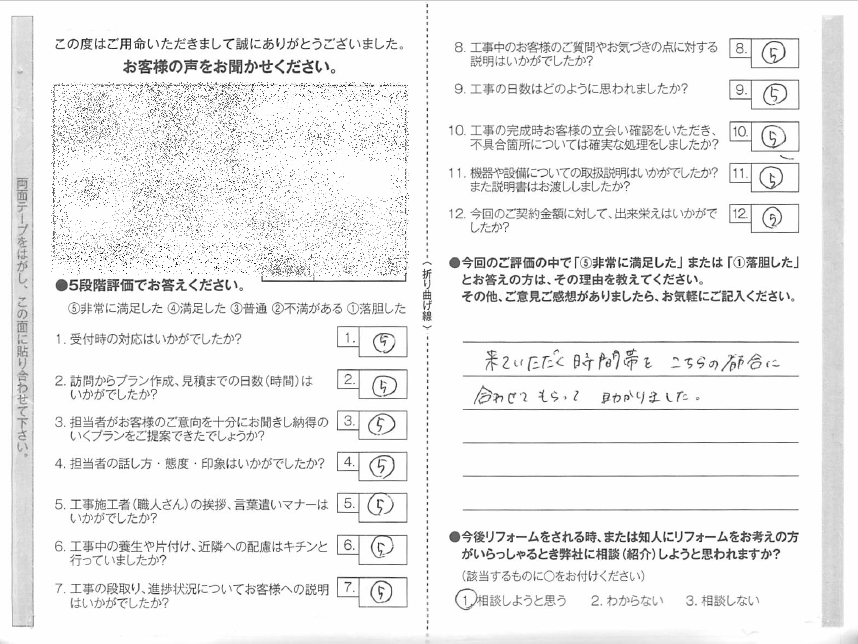 この度はご用命いただきまして誠にありがとうございました。
お客様の声をお聞かせください。
●5段階評価でお答えください。
⑤非常に満足した ④満足した ③普通 ②不満がある ①落胆した
1. 受付時の対応はいかがでしたか?
1. ⑤
2. 訪問からプラン作成、見積までの日数(時間)は
いかがでしたか?
2. ⑤
3. 担当者がお客様のご意向を十分にお聞きし納得の
いくプランをご提案できたでしょうか?
3. ⑤
4. 担当者の話し方・態度・印象はいかがでしたか?
4. ⑤
5. 工事施工者(職人さん)の挨拶、言葉遣いマナーは
いかがでしたか?
5. ⑤
6. 工事中の養生や片付け、近隣への配慮はキチンと
行っていましたか?
6. ⑤
7. 工事の段取り、進捗状況についてお客様への説明
はいかがでしたか?
7. ⑤
両面テープをはがし、この面に貼り合わせて下さい。
(折り曲げ線)
8. 工事中のお客様のご質問やお気づきの点に対する
説明はいかがでしたか?
8. ⑤
9. 工事の日数はどのように思われましたか?
9. ⑤
10. 工事の完成時お客様の立会い確認をいただき、
不具合箇所については確実な処理をしましたか?
10. ⑤
11. 機器や設備についての取扱説明はいかがでしたか?
また説明書はお渡ししましたか?
11. ⑤
12. 今回のご契約金額に対して、出来栄えはいかがで
したか?
12. ⑤
●今回のご評価の中で「⑤非常に満足した」または「①落胆した」
とお答えの方は、その理由を教えてください。
その他、ご意見ご感想がありましたら、お気軽にご記入ください。
来ていただく時間帯を こちらの都合に
合わせてもらって 助かりました。
●今後リフォームをされる時、または知人にリフォームをお考えの方
がいらっしゃるとき弊社に相談(紹介)しようと思われますか?
(該当するものに○をお付けください)
①.相談しようと思う 2. わからない 3. 相談しない